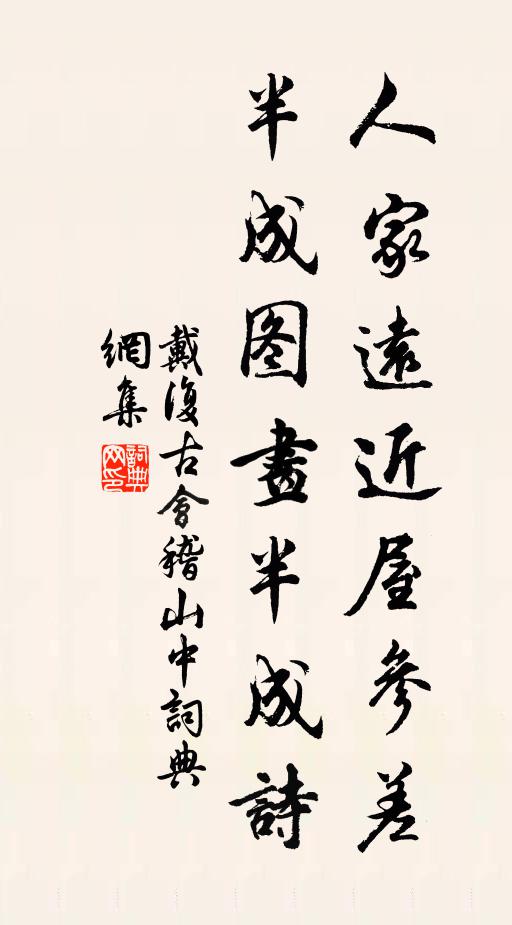 人家遠近屋參差
半成图畫半成詩
戴復古會稽山中詞典
網集
詞典网印